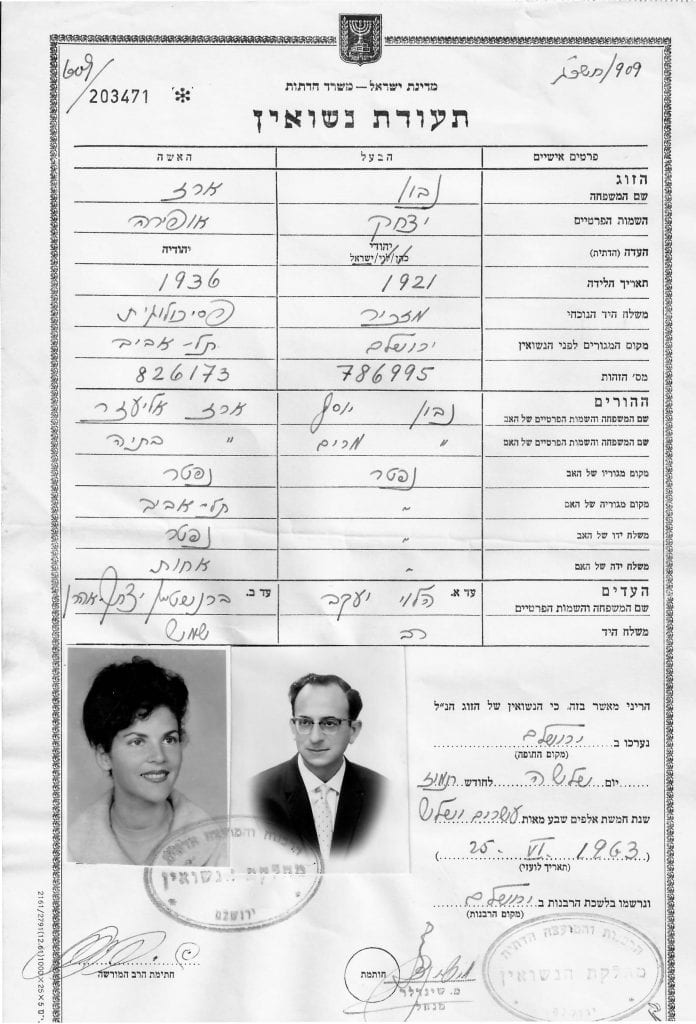 909/תשכ"ג
203471 *
מדינת ישראל – משרד הדתות
תעודת נשואין
פרטים אישיים הבעל האשה
הזוג
שם המשפחה נבון ארז
השמות הפרטיים יצחק אופירה
העדה (הדתית) יהודי כהן/לוי/ישראל יהודיה
תאריך הלידה 1921 1936
משלח היד הנוכחי מזכיר פסיכולוגית
מקום המגורים לפני הנשואין ירושלם תל-אביב
מס' הזהות 786995 826173
ההורים
שם המשפחה והשמות הפרטיים של האב נבון יוסף ארז אליעזר
שם המשפחה והשמות הפרטיים של האם " מרים " בתיה
מקום מגוריו של האב נפטר נפטר
מקום מגוריה של האם " תל-אביב
משלח ידו של האב " נפטר
משלח ידה של האם " אחות
העדים
שם המשפחה והשמות הפרטיים עד א. הלוי יעקב עד ב. ברנשטין יצחק-אהרן
משלח היד רב שמש
הריני מאשר בזה, כי הנשואין של הזוג הנ"ל
נערכו ב ירושלם
(מקום החופה)
יום שלישי ה לחודש תמוז
שנת חמשת אלפים שבע מאות עשרים ושלש
(25. VI. 1963)
(תאריך לועזי)
ונרשמו בלשכת הרבנות ב ירושלם
(מקום הרבנות)
הרבנות והמועצה הדתית
מחלקת הנשואין
ירושלם
הרבנות והמועצה הדתית
מחלקת הנשואין
חתימת הרב המורשה
חותמת
מ. שינדלר
מנהל
2161/2791(12.61)1000×25×5